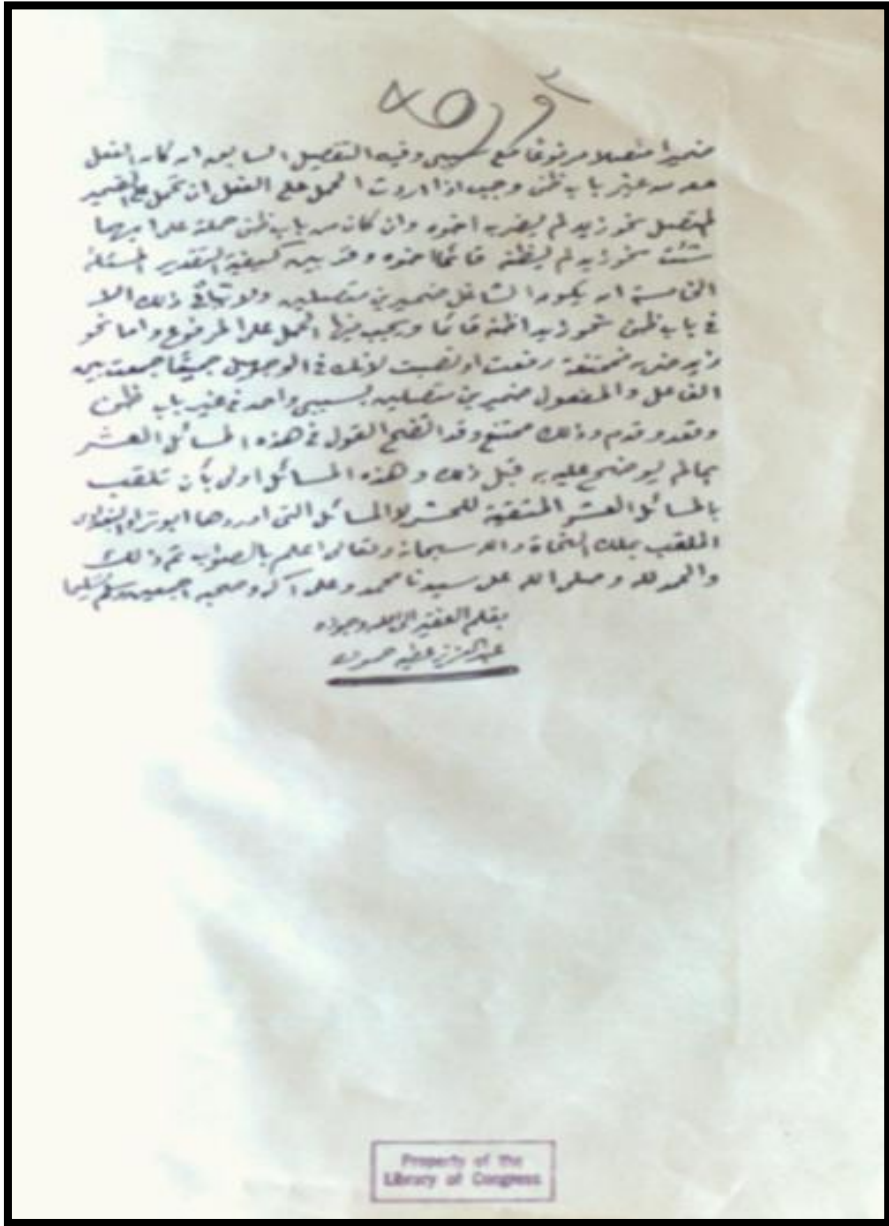 ضميرا متصلا مرفوعا مع سببى وفيه التفصيل السابق ان كان الفعل
من غير باب ظن وجب اذا اردت الحمل على الفعل ان تحمل على الضمير
المتصل نحو زيد لم يضربه اخوه وان كان من باب ظن حملت على ايهما
شئت نحو زيد لم يظنه قائما اخوه وقد بين كيفية التقدير المسئلة
الخامسة ان يكون الشاغل ضميرين متصلين ولا يتأتى ذلك الا
فى باب ظن نحو زيد اظنه قائما ويجب فيها الحمل على المرفوع واما نحو
زيد ضربه فممتنعة رفعت او نصبت لانك فى الوجهين جميعا جمعت بين
الفاعل والمفعول ضميرين متصلين لسببى واحد فى غير باب ظن
وفقد وعدم وذلك ممتنع وقد اتضح القول فى هذه المسائل العشر
بما لم يوضح عليه قبل ذلك وهذه المسائل اولى بأن تلقب
بالمسائل العشر المتقية للحشر لا المسائل التى اوردها ابو نزار البغدادى
الملقب بملك النحاة والله سبحانه وتعالى اعلم بالصواب تم ذلك
والحمد لله وصلى الله على سيدنا محمد وعلى آله وصحبه اجمعين وسلم تسليما
بقلم الفقير الى الله
عبد العزيز عطيه حسون
Property of the
Library of Congress